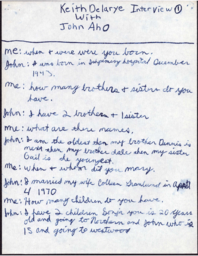 Keith Delarye Interview ①
With
John Aho
me: when & were were you born.
John: I was born in hospital December
me: how many brothers + sisters do you
have.
John: I have 2 brothers + 1 sister
me: what are there names.
John: I am the oldest then my brother Dennis is
next then my brother dale then my sister
Gail is the youngest.
me: when + who did you mary.
John: I married my wife Colleen in April
4 1970
me: How many children do you have.
John: I have 2 children is 20 years
old and going to Northern and John who is
15 and going to westwood